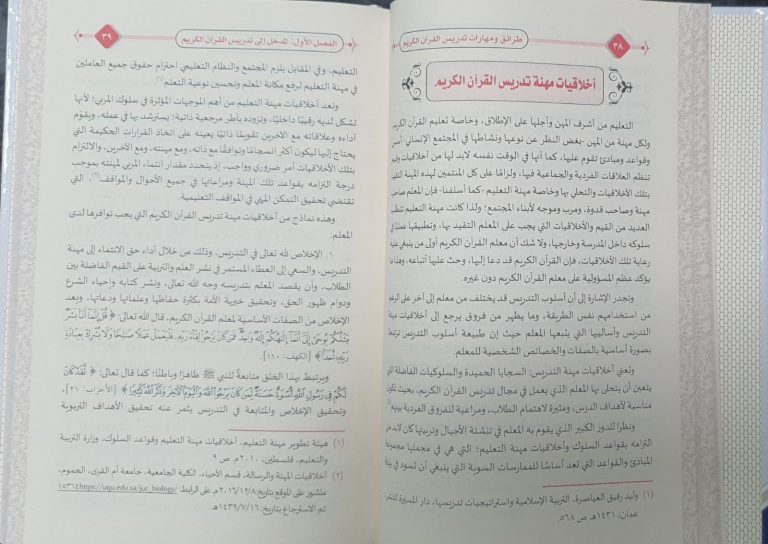 ٣٨
طرائق ومهارات تدريس القرآن الكريم
أخلاقيات مهنة تدريس القرآن الكريم
التعليم من أشرف المهن وأجلها على الإطلاق، وخاصة تعليم القرآن الكريم
ولكل مهنة من المهن -بغض النظر عن نوعها ونشاطها في المجتمع الإنساني-
وقواعد ومبادئ تقوم عليها، كما أنها في الوقت نفسه لابد لها من أخلاقيات
تنظم العلاقات الفردية والجماعية فيها، ولزامًا على كل المنتمين لهذه المهنة التقيد
بتلك الأخلاقيات والتحلي بها وخاصة مهنة التعليم -كما أسلفنا- فإن المعلم صاحب
مهنة وصاحب قدوة، ومرب وموجه لأبناء المجتمع؛ ولذا كانت مهنة التعليم تتطلب
العديد من القيم والأخلاقيات التي يجب على المعلم التقيد بها، وتطبيقها عمليًا في
سلوكه داخل المدرسة وخارجها، ولا شك أن معلم القرآن الكريم أولى من ينبغي عليه
رعاية تلك الأخلاقيات، فإن القرآن الكريم قد دعا إليها، وحث عليها أتباعه، وهذا ما
يؤكد عظم المسؤولية على معلم القرآن الكريم دون غيره.
وتجدر الإشارة إلى أن أسلوب التدريس قد يختلف من معلم إلى آخر على الرغم
من استخدامهم نفس الطريقة، وما يظهر من فروق يرجع إلى أخلاقيات مهنة
التدريس وأساليبها التي يتبعها المعلم حيث إن طبيعة أسلوب التدريس ترتبط
بصورة أساسية بالصفات والخصائص الشخصية للمعلم.
وتعني أخلاقيات مهنة التدريس: السجايا الحميدة والسلوكيات الفاضلة التي
يتعين أن يتحلى بها المعلم الذي يعمل في مجال تدريس القرآن الكريم، بحيث تكون
مناسبة لأهداف الدرس، ومثيرة لاهتمام الطلاب، ومراعية للفروق الفردية بينهم
ونظرًا للدور الكبير الذي يقوم به المعلم في تنشئة الأجيال وتربيتها كان لابد من
التزامه بقواعد السلوك وأخلاقيات مهنة التعليم؛ التي هي في مجملها مجموعة
المبادئ والقواعد التي تعد أساسًا للممارسات السوية التي ينبغي أن تسود في بيئة
(١) وليد رفيق العياصرة، التربية الإسلامية واستراتيجيات تدريسها، دار المسيرة للنشر
عمان، ١٤٣١هـ ص ٥٦٨.
الفصل الأول: المدخل إلى تدريس القرآن الكريم
٣٩
التعليم، وفي المقابل يلزم المجتمع والنظام التعليمي احترام حقوق جميع العاملين
في مهنة التعليم لرفع مكانة المعلم وتحسين نوعية التعلم(١).
وتعد أخلاقيات مهنة التعليم من أهم الموجهات المؤثرة في سلوك المربي؛ لأنها
تشكل لديه رقيبًا داخليًا، وتزوده بأطر مرجعية ذاتية؛ يسترشد بها في عمله، ويقوّم
أداءه وعلاقاته مع الآخرين تقويمًا ذاتيًا يعينه على اتخاذ القرارات الحكيمة التي
يحتاج إليها ليكون أكثر انسجامًا وتوافقًا مع ذاته، ومع مهنته، ومع الآخرين، والالتزام
بتلك الأخلاقيات أمر ضروري وواجب، إذ يتحدد مقدار انتماء المربي لمهنته بموجب
درجة التزامه بقواعد تلك المهنة ومراعاتها في جميع الأحوال والمواقف(٢)، التي
تقتضي تحقيق التمكن المهني في المواقف التعليمية.
وهذه نماذج من أخلاقيات مهنة تدريس القرآن الكريم التي يجب توافرها لدى
المعلم:
١. الإخلاص لله تعالى في التدريس، وذلك من خلال أداء حق الانتماء إلى مهنة
التدريس، والسعي إلى العطاء المستمر في نشر العلم والتربية على القيم الفاضلة بين
الطلاب، وأن يقصد المعلم بتدريسه وجه الله تعالى، ونشر كتابه وإحياء الشرع
ودوام ظهور الحق، وتحقيق خيرية الأمة بكثرة حفاظها وعلمائها ودعاتها، ويعد
الإخلاص من الصفات الأساسية لمعلم القرآن الكريم، قال الله تعالى: ﴿قُلْ إِنَّمَا أَنَا بَشَرٌ
مِثْلُكُمْ يُوحَىٰ إِلَيَّ أَنَّمَا إِلَٰهُكُمْ إِلَٰهٌ وَاحِدٌ فَمَن كَانَ يَرْجُوا لِقَاءَ رَبِّهِ فَلْيَعْمَلْ عَمَلًا صَالِحًا وَلَا يُشْرِكْ بِعِبَادَةِ
رَبِّهِ أَحَدًا﴾ [الكهف: ١١٠].
ويرتبط بهذا الخلق متابعةً للنبي ﷺ ظاهرًا وباطنًا؛ كما قال تعالى: ﴿لَّقَدْ كَانَ
لَكُمْ فِي رَسُولِ اللَّهِ أُسْوَةٌ حَسَنَةٌ لِّمَن كَانَ يَرْجُوا اللَّهَ وَالْيَوْمَ الْآخِرَ وَذَكَرَ اللَّهَ كَثِيرًا﴾ [الأحزاب: ٢١]،
وتحقيق الإخلاص والمتابعة في التدريس يثمر عنه تحقيق الأهداف التربوية
(١) هيئة تطوير مهنة التعليم، أخلاقيات مهنة التعليم وقواعد السلوك، وزارة التربية
والتعليم، فلسطين، ٢٠١٠م، ص ٩.
(٢) أخلاقيات المهنة والرسالة، قسم الأحياء، الكلية الجامعية، جامعة أم القرى، الجموم،
منشور على الموقع بتاريخ: ٢٠١٦/١٢/٨م على الرابط: https://uqu.edu.sa/juc_biology/١٨٣٦٤
تم الاسترجاع بتاريخ: ١٤٣٩/٧/١٦هـ.